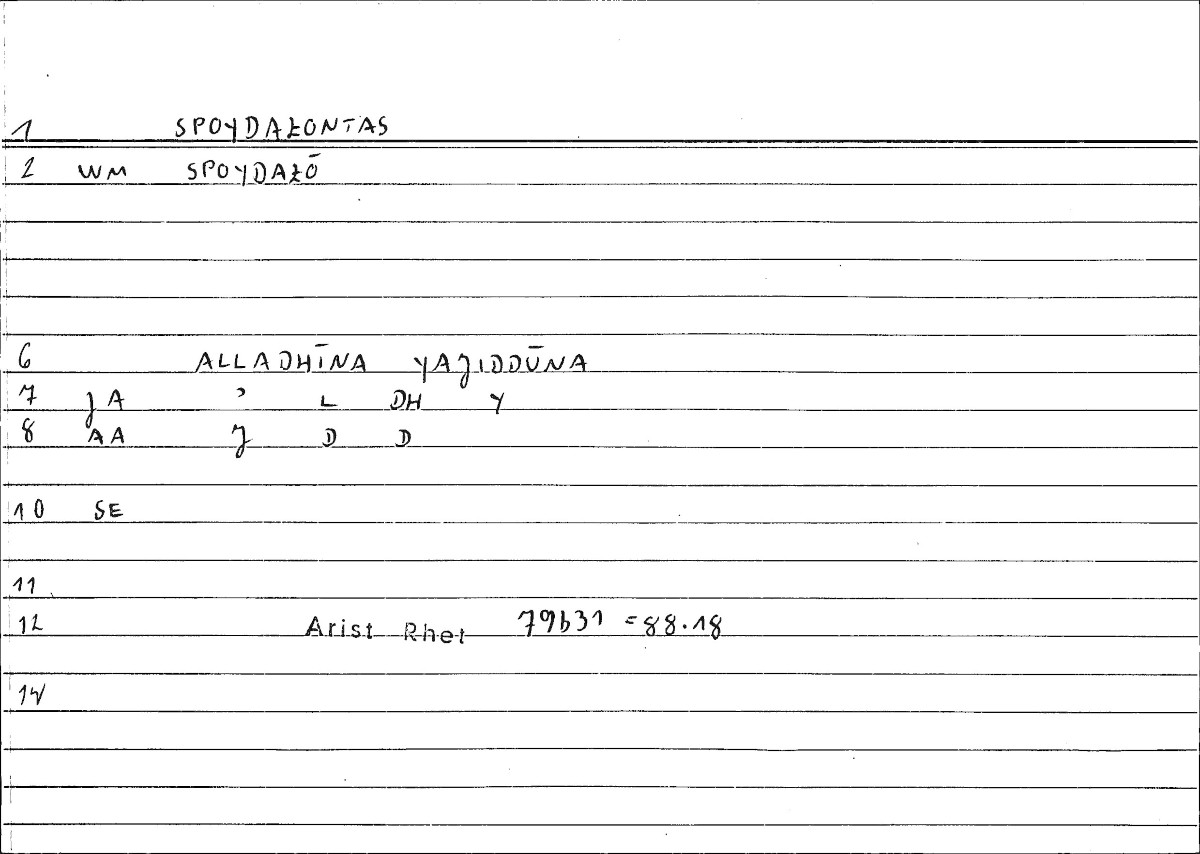 1 SPOYDAŁONTAS
2 WM SPOYDAŁŌ
6 ALLADHĪNA YAJIDDŪNA
7 JA ʾ L DH Y
8 AA J D D
10 SE
11
12 Arist Rhet 79b31 =88.18
14